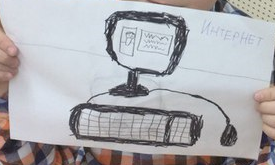 ИНТЕРНЕТ